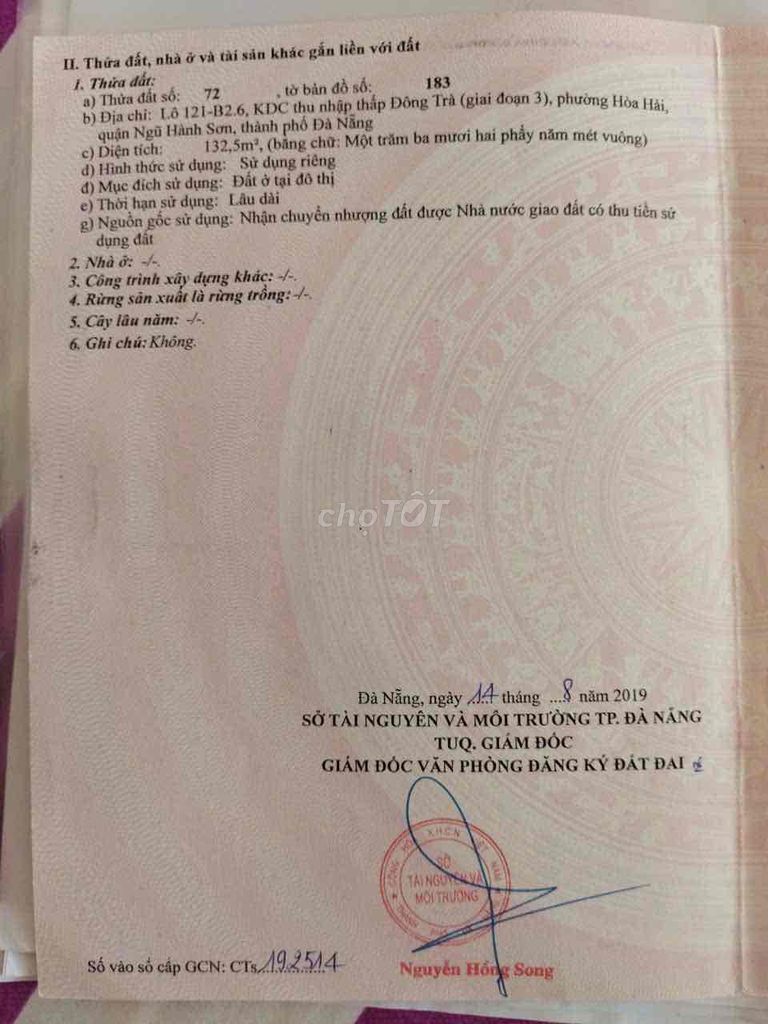 II. Thửa đất, nhà ở và tài sản khác gắn liền với đất
1. Thửa đất:
a) Thửa đất số: 72 , tờ bản đồ số: 183
b) Địa chỉ: Lô 121-B2.6, KDC thu nhập thấp Đông Trà (giai đoạn 3), phường Hòa Hải,
quận Ngũ Hành Sơn, thành phố Đà Nẵng
c) Diện tích: 132,5m², (bằng chữ: Một trăm ba mươi hai phẩy năm mét vuông)
d) Hình thức sử dụng: Sử dụng riêng
đ) Mục đích sử dụng: Đất ở tại đô thị
e) Thời hạn sử dụng: Lâu dài
g) Nguồn gốc sử dụng: Nhận chuyển nhượng đất được Nhà nước giao đất có thu tiền sử
dụng đất
2. Nhà ở: -/-.
3. Công trình xây dựng khác: -/-.
4. Rừng sản xuất là rừng trồng: -/-.
5. Cây lâu năm: -/-.
6. Ghi chú: Không.
chợTỐT
Đà Nẵng, ngày 14 tháng 8 năm 2019
SỞ TÀI NGUYÊN VÀ MÔI TRƯỜNG TP. ĐÀ NẴNG
TUQ. GIÁM ĐỐC
GIÁM ĐỐC VĂN PHÒNG ĐĂNG KÝ ĐẤT ĐAI
SỞ
TÀI NGUYÊN VÀ
MÔI TRƯỜNG
Số vào sổ cấp GCN: CTs 192514
Nguyễn Hồng Song